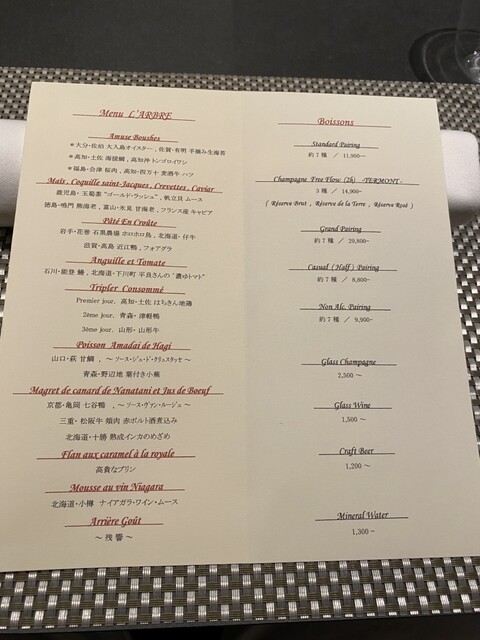 Menu L'ARBRE
Amuse Boushes
*大分・佐伯 大入島オイスター , 佐賀・有明 手摘み生海苔
*高知・土佐 海援鯛 , 高知沖 トンゴロイワシ
*福島・会津 桜肉 , 高知・四万十 麦酒牛 ハツ
Maïs , Coquille saint-Jacques , Crevettes , Caviar
鹿児島・玉蜀黍 "ゴールド・ラッシュ" , 帆立貝 ムース
徳島・鳴門 熊海老 , 富山・氷見 甘海老 , フランス産 キャビア
Pâté En Croûte
岩手・花巻 石黒農場 ホロホロ鳥 , 北海道・仔牛
滋賀・高島 近江鴨 , フォアグラ
Anguille et Tomate
石川・能登 鰻 , 北海道・下川町 平良さんの "濃ゆトマト"
Tripler Consommé
Premier jour. 高知・土佐 はちきん地鶏
2ème jour. 青森・ 津軽鴨
3ème jour. 山形・ 山形牛
Poisson Amadai de Hagi
山口・萩 甘鯛 , ～ ソース・ジュ・ド・クリュスタッセ ～
青森・野辺地 葉付き小蕪
Magret de canard de Nanatani et Jus de Boeuf
京都・亀岡 七谷鴨 , ～ ソース・ヴァン・ルージュ ～
三重・ 松阪牛 頬肉 赤ポルト酒煮込み
北海道・十勝 熟成インカのめざめ
Flan aux caramel à la royale
高貴なプリン
Mousse au vin Niagara
北海道・小樽 ナイアガラ・ワイン・ムース
Arrière Goût
～ 残 響 ～
Boissons
Standard Pairing
約７種 ／ 11,900～
Champagne Free Flow (2h) -TERMONT-
3 種 ／ 14,900～
( Réserve Brut , Réserve de la Terre , Réserve Rosé )
Grand Pairing
約７種 ／ 20,800～
Casual ( Half ) Pairing
約７種 ／ 8,800～
Non Alc. Pairing
約７種 ／ 9,900～
Glass Champagne
2,500 ～
Glass Wine
1,500 ～
Craft Beer
1,200 ～
Mineral Water
1,300 ～